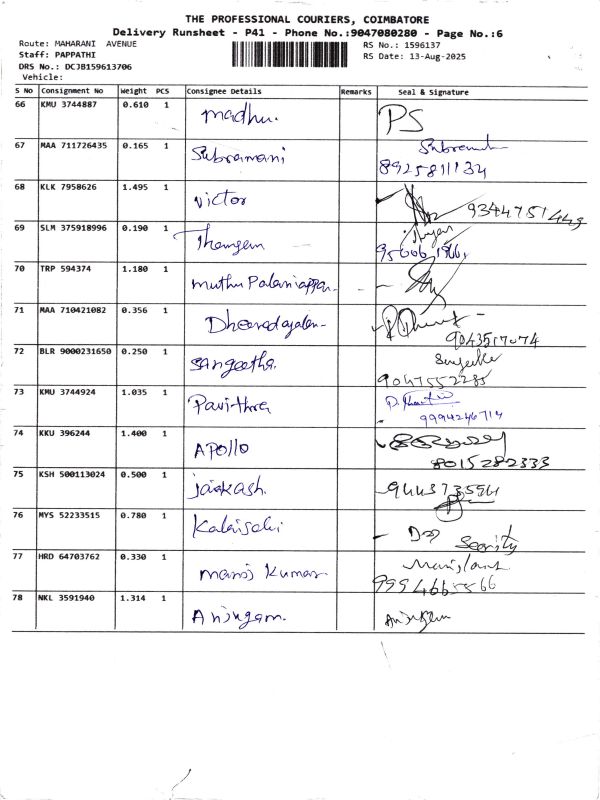 THE PROFESSIONAL COURIERS, COIMBATORE
Delivery Runsheet - P41 - Phone No.:9047080280 - Page No.:6
Route: MAHARANI AVENUE
RS No.: 1596137
Staff: PAPPATHI
RS Date: 13-Aug-2025
DRS No.: DCJB159613706
Vehicle:
S No Consignment No Weight PCS Consignee Details Remarks Seal & Signature
66 KMU 3744887 0.610 1 madhu. PS
67 MAA 711726435 0.165 1 Subramani
8925811134
68 KLK 7958626 1.495 1 Victor 9344751449
69 SLM 375918996 0.190 1
70 TRP 594374 1.180 1 muthu Palaniappan
71 MAA 710421082 0.356 1 Dheenadayalan
9043517074
72 BLR 9000231650 0.250 1 Sangeetha. Sangeetha
9047552285
73 KMU 3744924 1.035 1 Pavithra
9994246714
74 KKU 396244 1.400 1 APOllO
8015282333
75 KSH 500113024 0.500 1 jaikash.
76 MYS 52233515 0.780 1 Kalaiselvi
77 HRD 64703762 0.330 1 manoj Kumar
9994665566
78 NKL 3591940 1.314 1